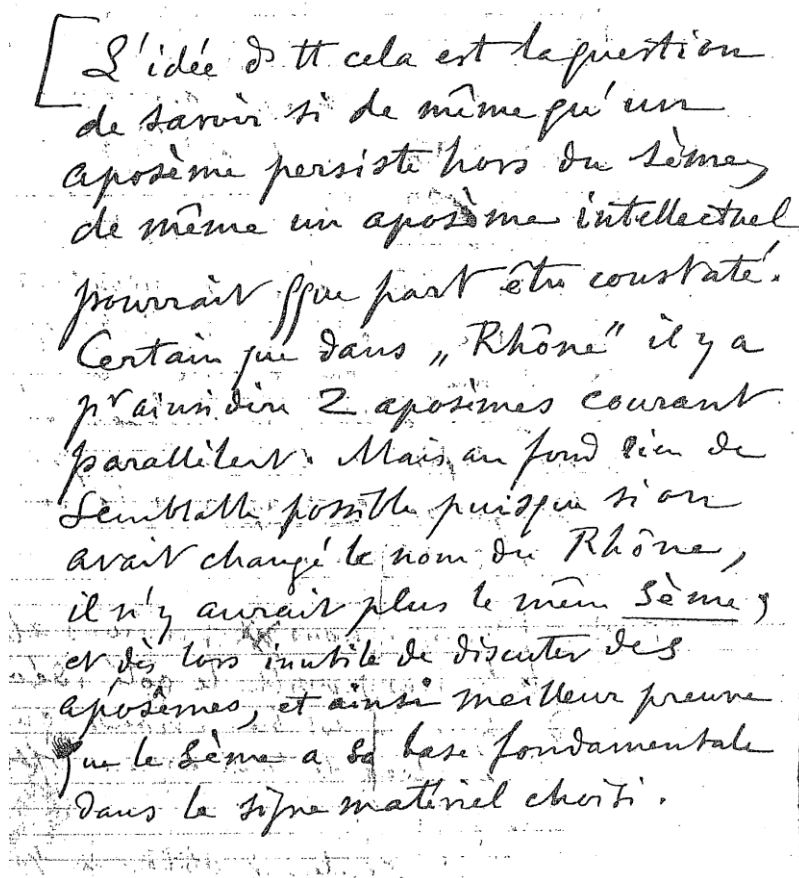 [L'idée ds tt cela est la question
de savoir si de même qu'un
aposème persiste hors du sème,
de même un aposème intellectuel
pourrait qque part être constaté.
Certain que dans „Rhône" il y a
pr ainsi dire 2 aposèmes courant
parallèlent. Mais au fond rien de
semblable possible puisque si on
avait changé le nom du Rhône,
il n'y aurait plus le même sème,
et dès lors inutile de discuter des
aposèmes, et ainsi meilleure preuve
que le sème a sa base fondamentale
dans le signe matériel choisi.